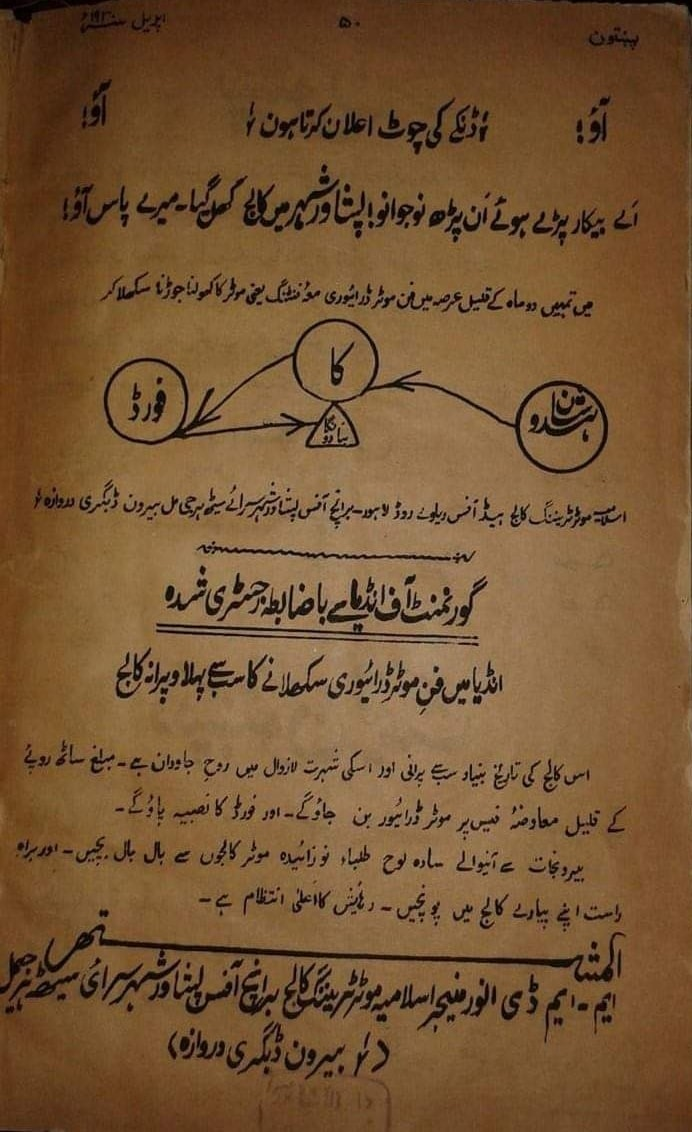 پښتون
۵۰
اپریل سنہ ۱۹۳۰ء
آؤ! ڈنکے کی چوٹ اعلان کرتا ہون آؤ!
اَے بیکار پڑے ہوئے اَن پڑھ نوجوانو! پشاور شہر میں کالج کھل گیا۔ میرے پاس آؤ!
میں تمہیں دو ماہ کے قلیل عرصہ میں فن موٹر ڈرائیوری معہ فٹنگ یعنی موٹر کا کھولنا جوڑنا سکھلا کر
ہندوستان
کا
فورڈ
بنا دونگا
اسلامیہ موٹر ٹریننگ کالج ہیڈ آفس ریلوے روڈ لاہور۔ برانچ آفس پشاور شہر سرائے سیٹھ ہرجی مل بیرون ڈبگری دروازہ
گورنمنٹ آف انڈیا سے باضابطہ رجسٹری شدہ
انڈیا میں فنِ موٹر ڈرائیوری سکھلانے کا سب سے پہلا و پرانہ کالج
اس کالج کی تاریخ بنیاد سب سے پرانی اور اسکی شہرت لازوال میں روحِ جاودان ہے۔ مبلغ ساٹھ روپے
کے قلیل معاوضۂ فیس پر موٹر ڈرائیور بن جاؤگے۔ اور فورڈ کا نصیبہ پاؤگے۔
بیرونجات سے آنیوالے سادہ لوح طلباء نوزائیدہ موٹر کالجوں سے بال بال بچیں۔ اور براہ
راست اپنے پیارے کالج میں پونچیں۔ رہائیش کا اعلیٰ انتظام ہے۔
المشتھر
ایم۔ ایم ڈی انور منیجر اسلامیہ موٹر ٹریننگ کالج برانچ آفس پشاور شہر سرائے سیٹھ ہرجیمل
(بیرون ڈبگری دروازہ)